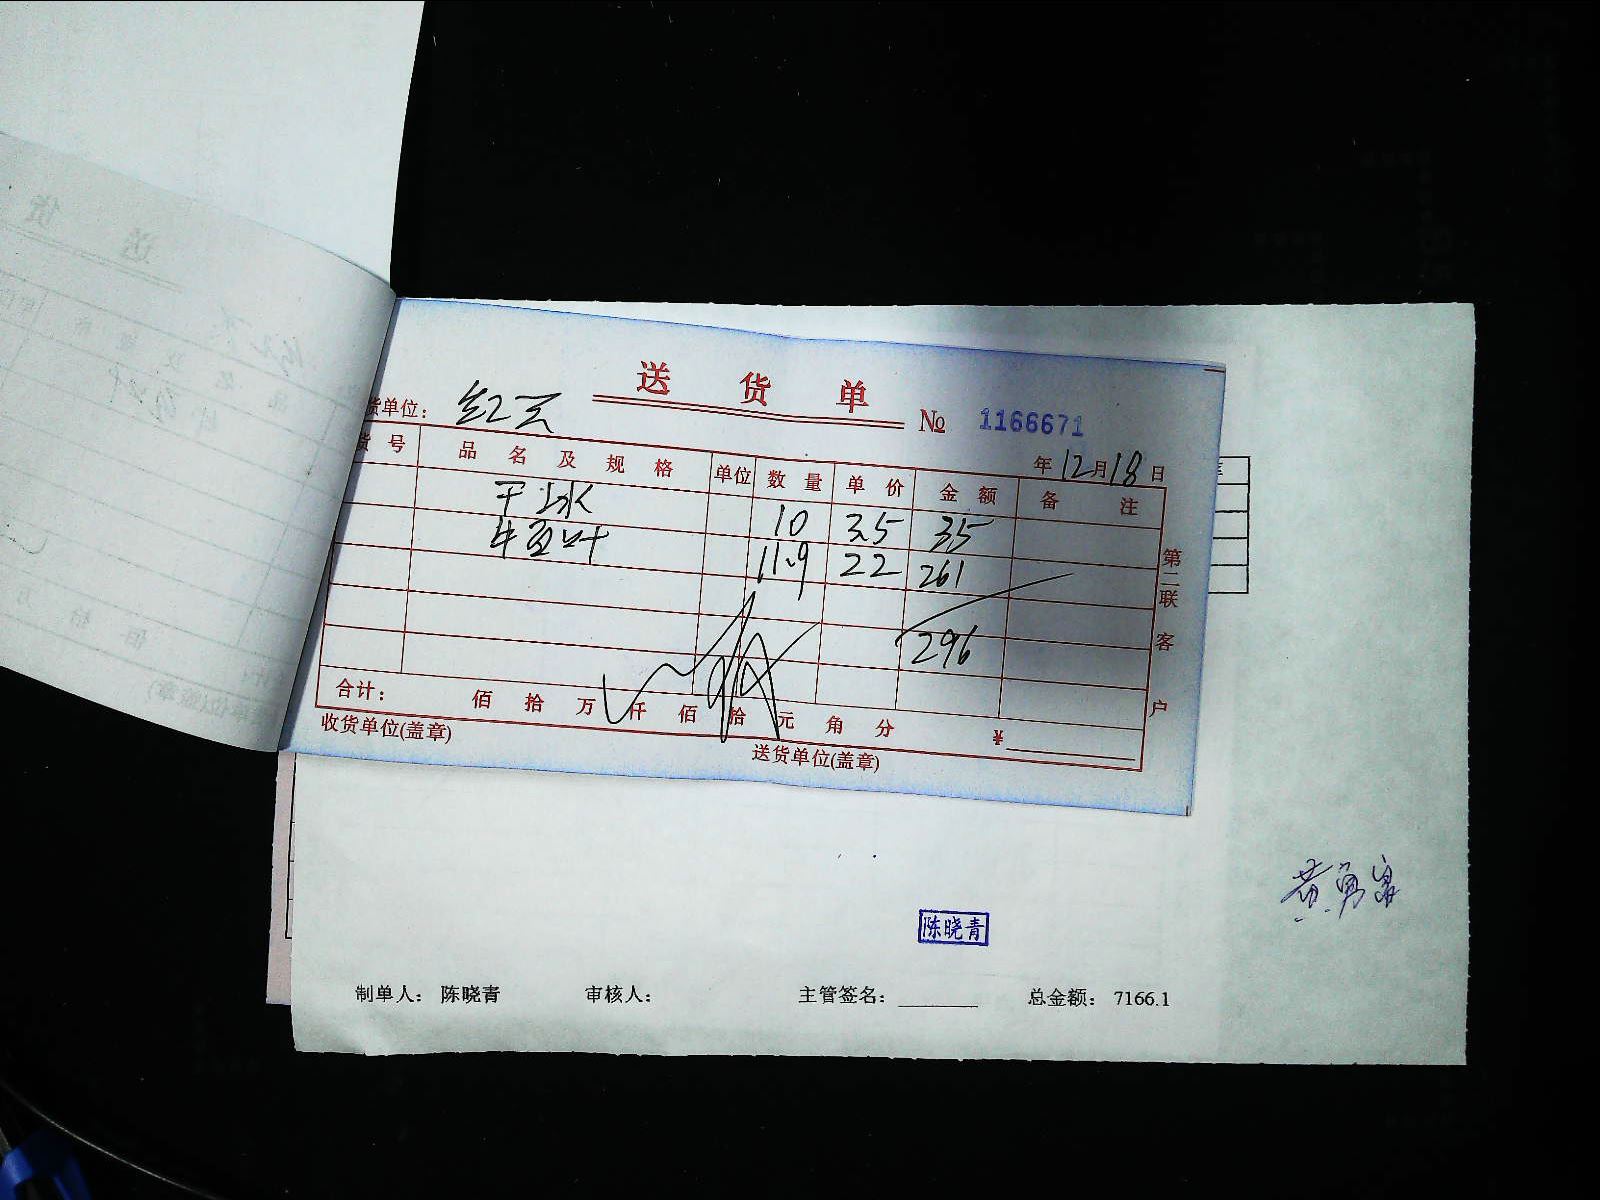 送货单
№ 1166671
货单位：红云
年12月18日
货号 品名及规格 单位 数量 单价 金额 备注
干冰 10 3.5 35
牛百叶 11.9 22 261
296
合计： 佰 拾 万 仟 佰 拾 元 角 分 ¥
收货单位(盖章) 送货单位(盖章)
第二联 客户
陈晓青
制单人： 陈晓青 审核人： 主管签名： 总金额： 7166.1